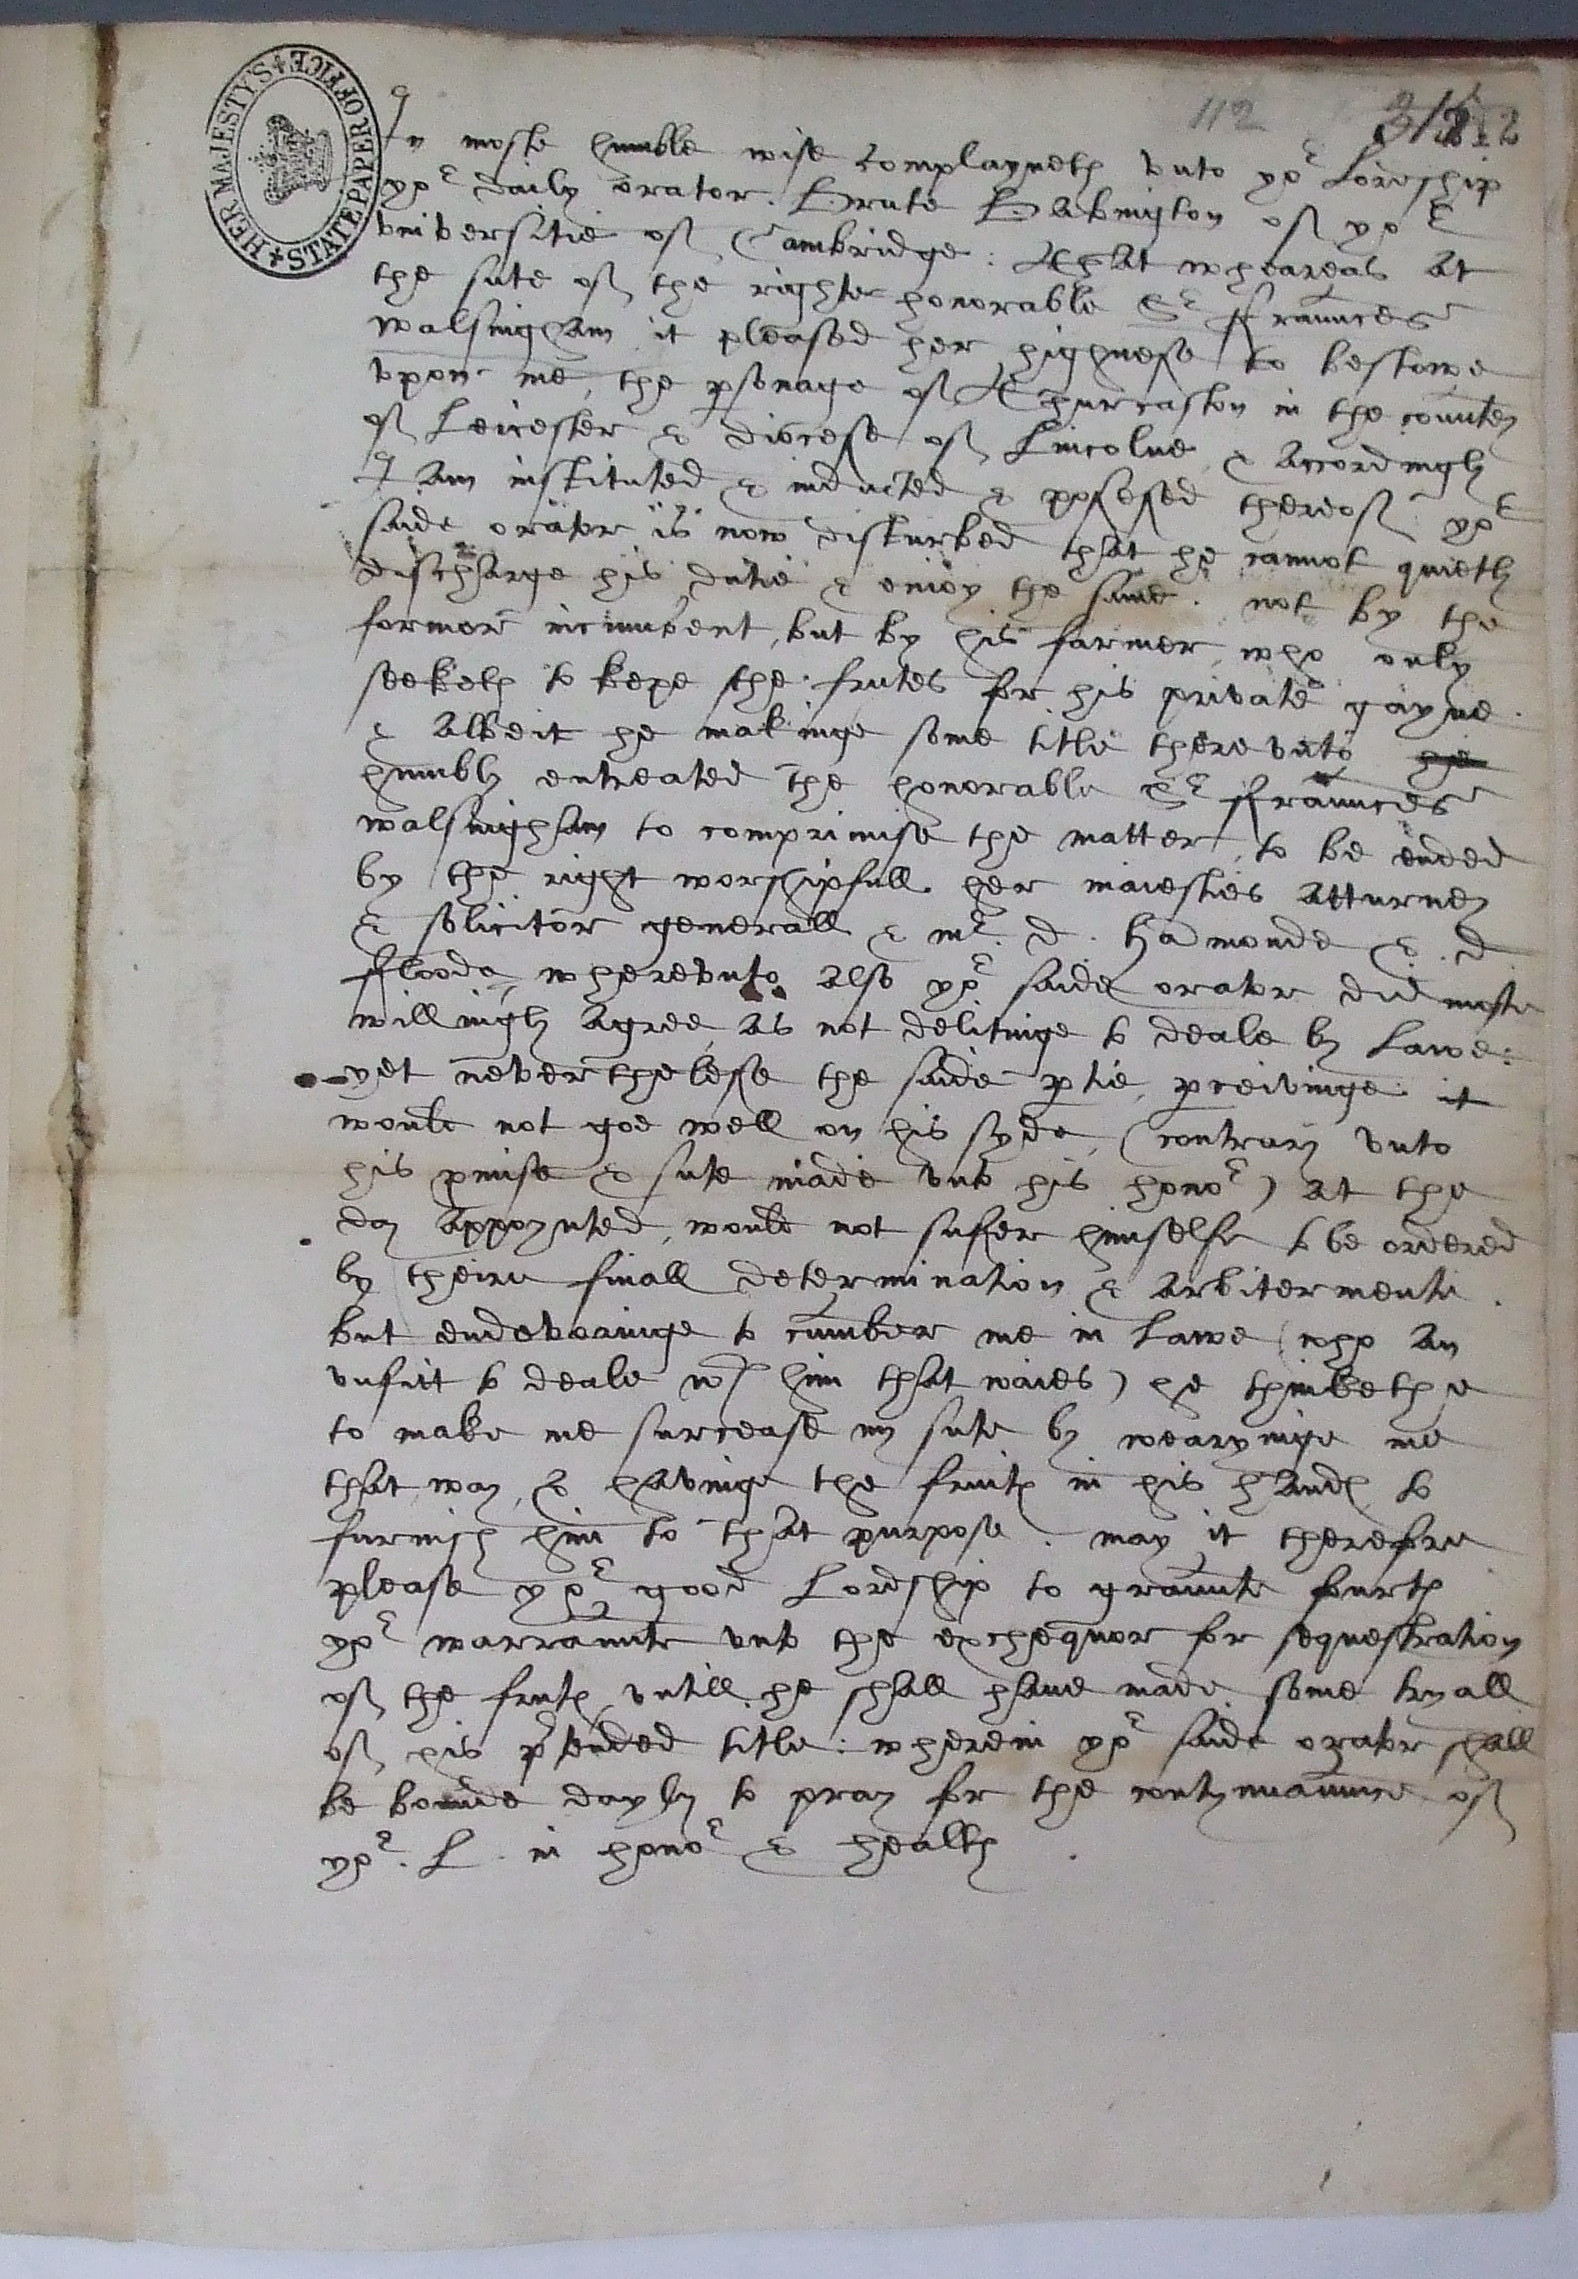 HER MAJESTY'S STATE PAPER OFFICE
112
In moste humble wise complayneth vnto yor Lordship
yor daily orator. Brute Babington of yor
vniversitie of Cambridge: That wheareas at
the sute of the righte honorable Sr ffraunces
walsingham it pleased her highnesse to bestowe
vpon me, the psonage of Thurcaston in the countey
of Leicester & diocesse of Lincolne, & accordingly
I am instituted & inducted & possessed thereof yor
saide orator is now disturbed that he cannot quietly
discharge his dutie & enioy the same. not by the
former incumbent, but by his farmer, who only
seeketh to kepe the frutes for his private gayne.
& Albeit he makinge some title therevnto he
humbly entreated the honorable Sr ffraunces
walsingham to comprimise the matter, to be ended
by the right worshipfull her maiesties Atturney
& solicitor generall & mr. d. Hamonde & d
floode, wherevnto also yor saide orator did moste
willingly agree, as not delitinge to deale by Lawe:
yet neverthelesse the saide ptie, pceivinge it
would not goe well on his syde, (contrary vnto
his pmise & sute made vnto his honor) at the
day appoynted, would not suffer himselfe to be ordered
by theire finall determination & arbitermente.
but endevoringe to cumber me in Lawe (who am
vnfitt to deale wth him that waies) he thinkethe
to make me surcease my sute by wearyinge me
that way, & havinge the fruites in his handes to
furnish him to that purpose. may it therefore
please yor good Lordship to graunte fourth
yor warraunte vnto the exchequor for sequestration
of the frutes vntill he shall have made some tryall
of his ptended title: wherein yor saide orator shall
be bounde dayly to pray for the contynuaunce of
yor. L. in honor & health.